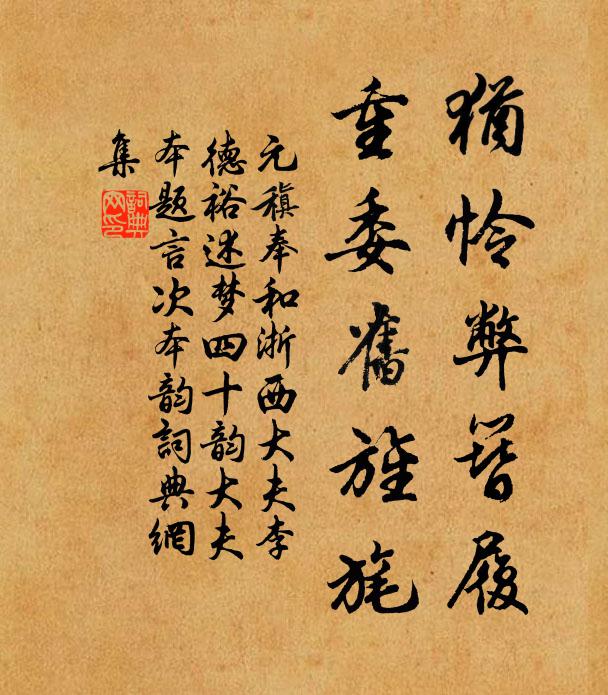 猶怜弊簪履
重委舊旌旄
元稹奉和浙西大夫李
德裕述梦四十韵大夫
本题言次本韵詞典網
集
詞典網印